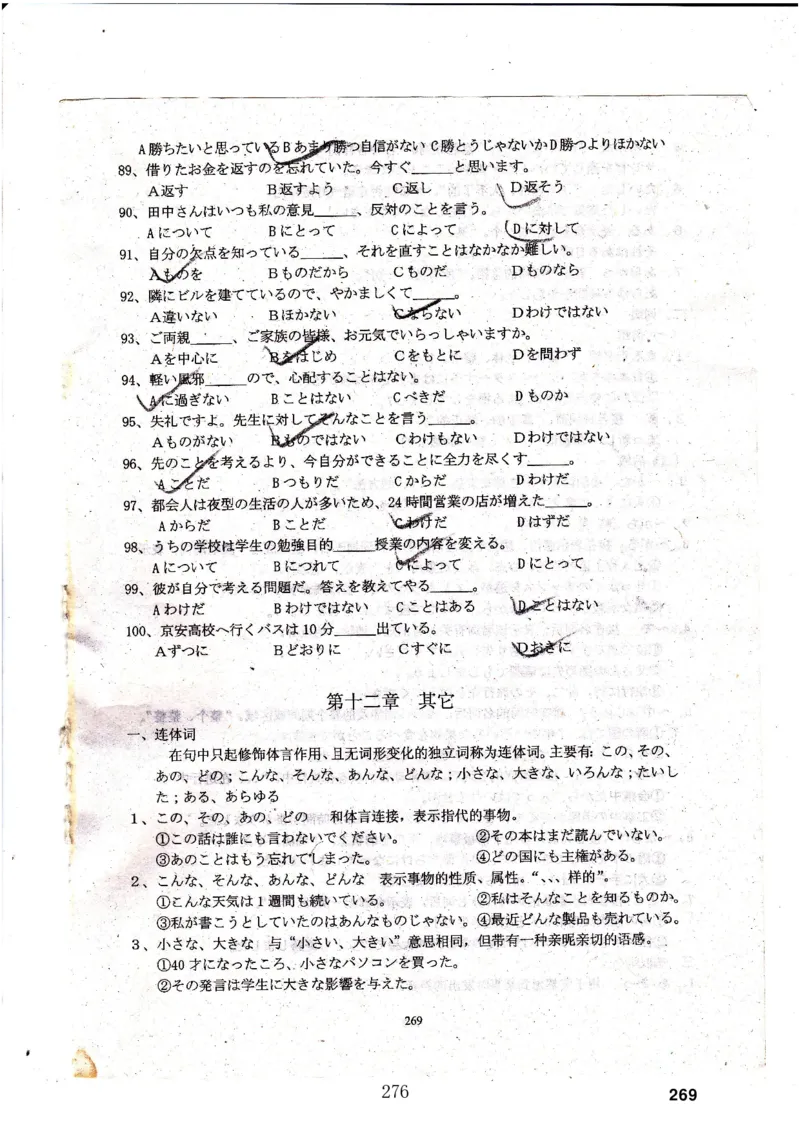 A勝ちたいと思っているBあまり勝つ自信がない C勝とうじゃないかD勝つよりほかない
89、借りたお金を返すのを忘れていた。今すぐ_____と思います。
A返す B返すよう C返し D返そう
90、田中さんはいつも私の意見_____、反対のことを言う。
Aについて Bにとって Cによって Dに対して
91、自分の欠点を知っている_____、それを直すことはなかなか難しい。
Aものを Bものだから Cものだ Dものなら
92、隣にビルを建てているので、やかましくて_____。
A違いない Bほかない Cならない Dわけではない
93、ご両親_____、ご家族の皆様、お元気でいらっしゃいますか。
Aを中心に Bをはじめ Cをもとに Dを問わず
94、軽い風邪_____ので、心配することはない。
Aに過ぎない Bことはない Cべきだ Dものか
95、失礼ですよ。先生に対してそんなことを言う_____。
Aものがない Bものではない Cわけもない Dわけではない
96、先のことを考えるより、今自分ができることに全力を尽くす_____。
Aことだ Bつもりだ Cからだ Dわけだ
97、都会人は夜型の生活の人が多いため、24時間営業の店が増えた_____。
Aからだ Bことだ Cわけだ Dはずだ
98、うちの学校は学生の勉強目的_____授業の内容を変える。
Aについて Bにつれて Cによって Dにとって
99、彼が自分で考える問題だ。答えを教えてやる_____。
Aわけだ Bわけではない Cことはある Dことはない
100、京安高校へ行くバスは10分_____出ている。
Aずつに Bどおりに Cすぐに Dおきに
第十二章 其它
一、连体词
在句中只起修饰体言作用、且无词形变化的独立词称为连体词。主要有：この、その、
あの、どの；こんな、そんな、あんな、どんな；小さな、大きな、いろんな；たいし
た；ある、あらゆる
1、この、その、あの、どの 和体言连接，表示指代的事物。
①この話は誰にも言わないでください。 ②その本はまだ読んでいない。
③あのことはもう忘れてしまった。 ④どの国にも主権がある。
2、こんな、そんな、あんな、どんな 表示事物的性质、属性。“、、、样的”。
①こんな天気は1週間も続いている。 ②私はそんなことを知るものか。
③私が書こうとしていたのはあんなものじゃない。④最近どんな製品も売れている。
3、小さな、大きな 与“小さい、大きい”意思相同，但带有一种亲昵亲切的语感。
①40才になったころ、小さなパソコンを買った。
②その発言は学生に大きな影響を与えた。
269
276
269